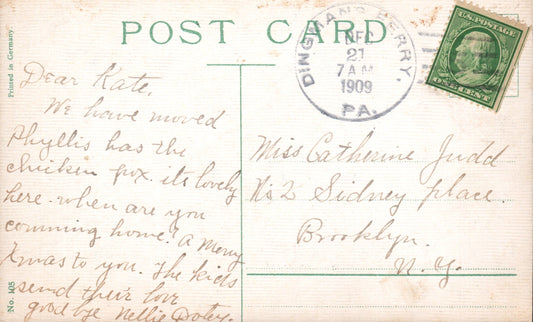 POST CARD
Printed in Germany
DINGMAN'S FERRY,
DEC
21
7 AM
1909
PA.
U.S. POSTAGE
ONE CENT
Dear Kate,
We have moved
Phyllis has the
chicken pox. its lovely
here. when are you
comming home? A Merry
Xmas to you. The kids
send their love
good bye Nellie Doty.
Miss Catherine Judd
No 2 Sidney place.
Brooklyn.
N.Y.
No. 105